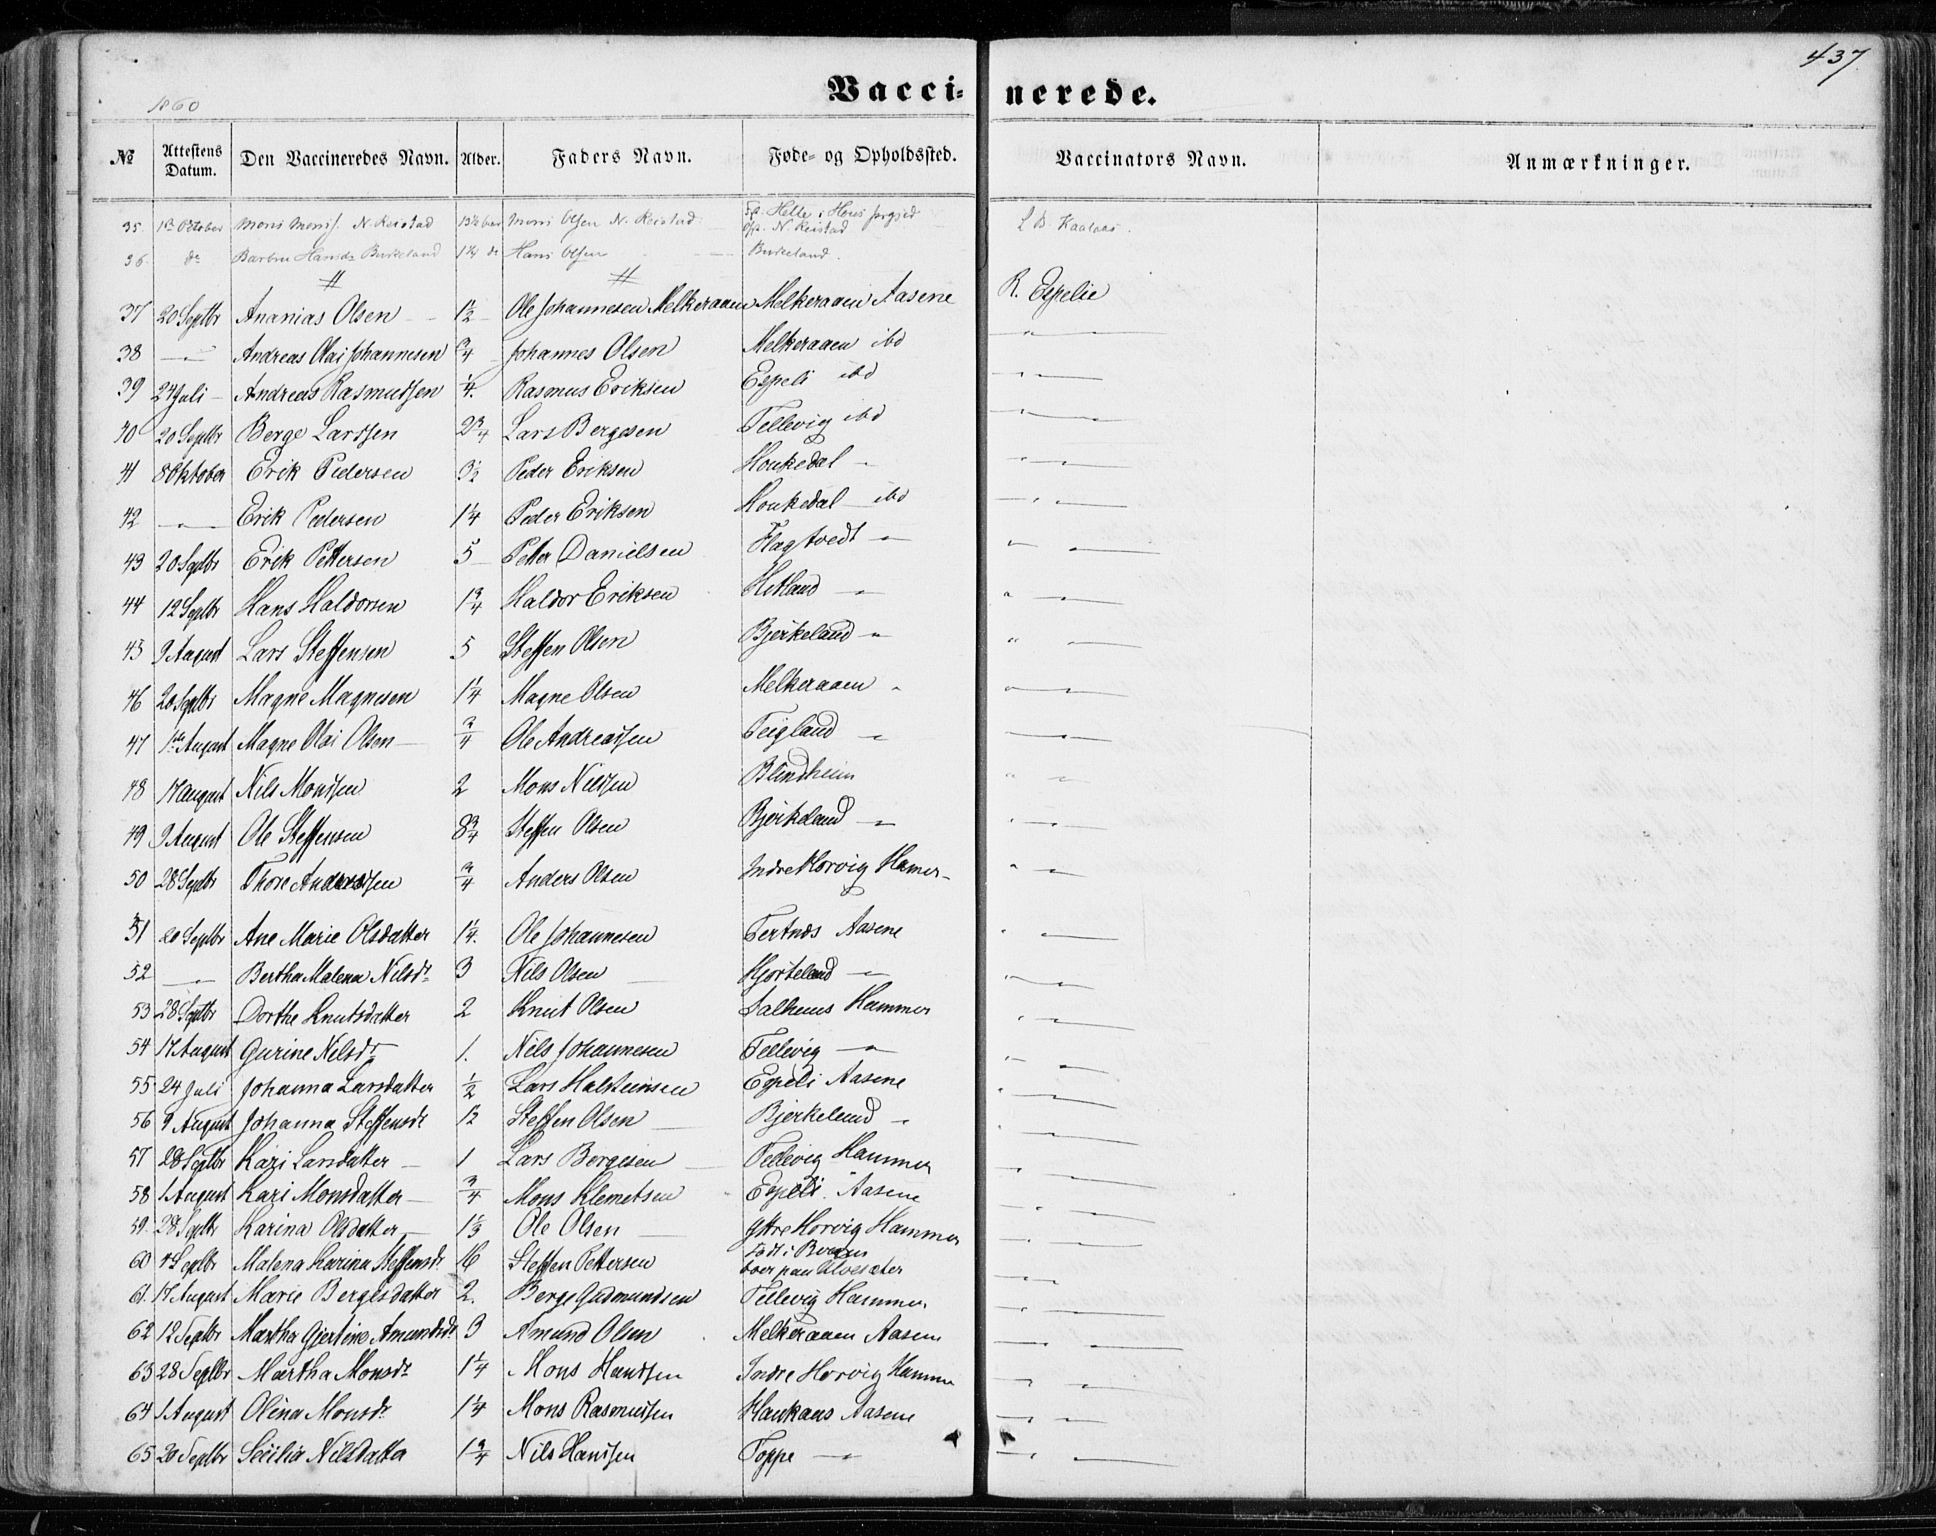 437
Vaccinerede.
1860
№ | Attestens Datum. | Den Vaccineredes Navn. | Alder. | Faders Navn. | Føde- og Opholdssted. | Vaccinators Navn. | Anmærkninger.
35. 1ste October Mons Monss. N. Reistad Mons Olsen N. Reistad Opp. N. Reistad L. B. Kaalaas.
36. do Barbro Hansdr Birkeland do Hans Olsen Birkeland.
37 20 Septbr Ananias Olsen 1½ Ole Johannesen Melkeraaen Melkeraaen Aasene R. Espelie
38 — " — Andreas Olai Johannesen ¾ Johannes Olsen Melkeraaen ibd " —
39 24 Juli Andreas Rasmussen ¼. Rasmus Eriksen Espeli ibd " " —
40 20 Septbr Berge Larssen 2¾ Lars Bergesen Tellevig ibd " " —
41 8 Oktober Erik Pedersen 3½ Peder Eriksen Houkedal " " " —
42 — " — Erik Pedersen 1¼ Peder Eriksen Houkedal ibd " " —
43 20 Septbr Erik Pettersen 5 Petter Danielsen Flagtvedt " " " —
44 12 Septbr Hans Haldorsen 1¾ Haldor Eriksen Hetland " " " —
45 9 August Lars Steffensen 5 Steffen Olsen Bjerkeland " " " —
46 20 Septbr Magne Magnesen 1¼ Magne Olsen Melkeraaen " " " —
47 1ste August Magne Olai Olsen ¾ Ole Andreassen Teigland " " " —
48 17 August Nils Monssen 2 Mons Nilssen Blindheim " " —
49 9 August Ole Steffensen 8¾ Steffen Olsen Bjerkeland " " " —
50 28 Septbr Thore Anderssen ¾ Anders Olsen Indre Horvig Hamer " " —
51 20 Septbr Ane Marie Olsdatter 1¼. Ole Johannesen Tertnes Aasene " " —
52 — " — Bertha Malena Nilsdr 3 Nils Olsen Hjorteland " " " —
53 28 Septbr Dorthe Knutsdatter 2 Knut Olsen Salhuus Hammer " " —
54 17 August Gurine Nilsdr 1. Nils Johannesen Tellevig " " " —
55 24 Juli Johanna Larsdatter ½ Lars Halsteinsen Espeli Aasene " " —
56 9 August Johanna Steffensdr 12 Steffen Olsen Bjerkeland " " " —
57 28 Septbr Kari Larsdatter 1 Lars Bergesen Tellevig Hammer " " —
58 1 August Kari Monsdatter ¾ Mons Klemetsen Espeli Aasene " " —
59. 28 Septbr Karina Olsdatter 1⅓ Ole Olsen Yttre Horvig Hammer " " —
60 4 Septbr Malena Karina Steffensdr 16 Steffen Pettersen Født i Bergen
boer paa Ulvesæter " " —
61. 17 August Marie Bergesdatter 2. Berge Gudmundsen Tellevig Hammer " " —
62 12 Septbr Martha Gjertine Amundsdr 3 Amund Olsen Melkeraaen Aasene " " —
63 28 Septbr Martha Monsdr 1¼ Mons Hanssen Indre Horvig Hammer " " —
64 1 August Olina Monsdr 1¼ Mons Rasmussen Haukaas Aasene " " —
65 20 Septbr Secilia Nilsdatter 1¾ Nils Hanssen Toppe " " " —